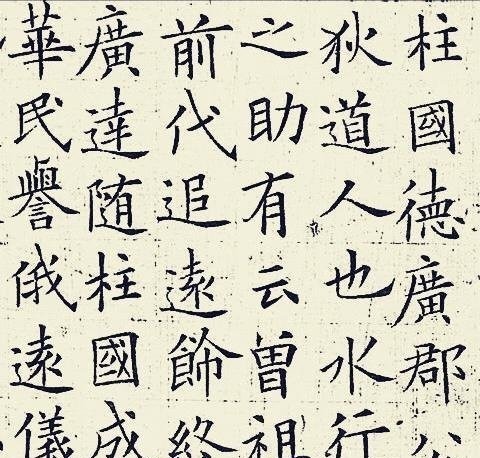 柱國德廣郡公
狄道人也水行
之助有云曾祖
前代追遠飾終
廣達随柱國成
華民譽俄遠儀